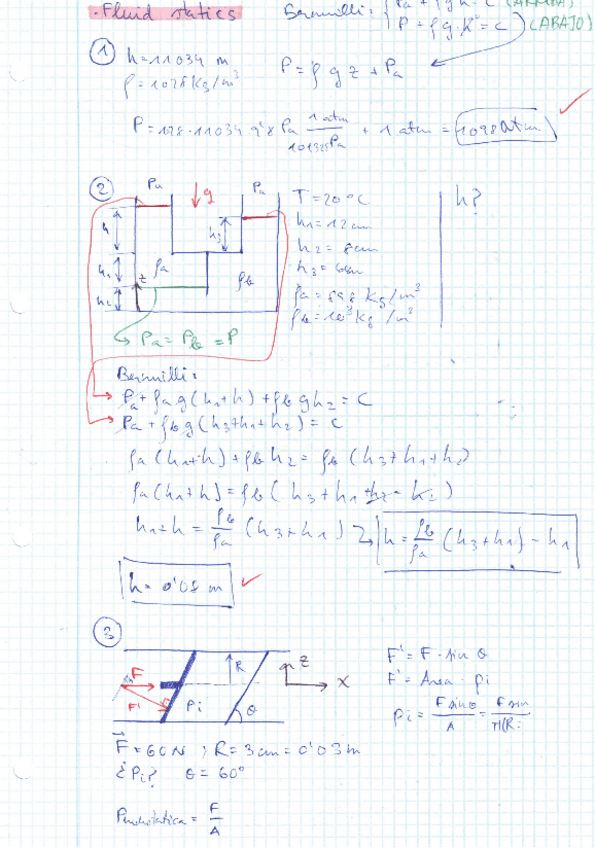 Fluid statics
Bernuilli: { Pa + ρg h = C (ARRIBA)
P + ρg·h = C (ABAJO)
① h=11034 m
ρ=1028 kg/m³
P = ρ g z + Pa
P= 1028·11034 9'8 Pa 1 atm / 101325 Pa + 1 atm = 1098 atm
② Pa g Pa
h h₃
h₁ ρa ρb
z
h₂
Pa = Pb = P
T = 20ºC
h₁ = 12 cm
h₂ = 8 cm
h₃ = 6 cm
ρa = 898 kg/m³
ρb = 10³ kg/m³
h?
Bernuilli:
Pa + ρa g (h₁+h) + ρb g h₂ = C
Pa + ρb g (h₃+h₁+h₂) = C
ρa (h₁+h) + ρb h₂ = ρb (h₃+h₁+h₂)
ρa (h₁+h) = ρb (h₃+h₁+h₂-h₂)
h₁+h = ρb/ρa (h₃+h₁) → h = ρb/ρa (h₃+h₁) - h₁
h = 0'08 m
③
F R z
F' Pi θ x
F' = F · sin θ
F' = Area · pi
pi = F sin θ / A = F sin
F = 60 N ; R = 3 cm = 0'03 m
¿Pi? θ = 60°
= F/A